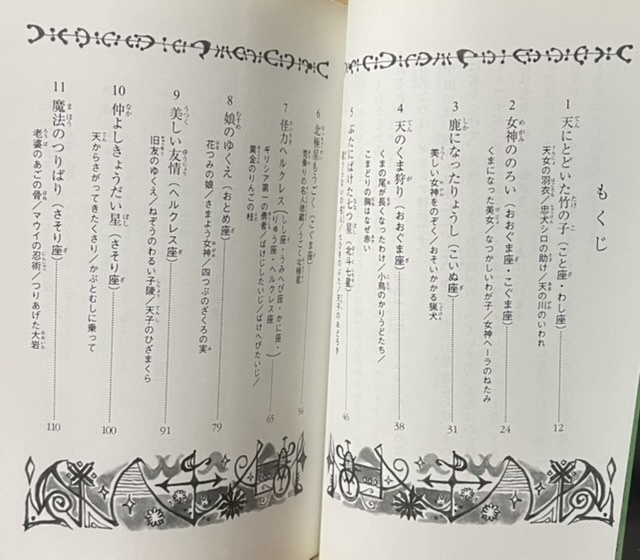 もくじ
1 天にとどいた竹の子（こと座・わし座） 12
天女の羽衣／忠犬シロの助け／天の川のいわれ
2 女神ののろい（おおぐま座・こぐま座） 24
くまになった美女／なつかしいわが子／女神ヘーラのねたみ
3 鹿になったりょうし（こいぬ座） 31
美しい女神をのぞく／おそいかかる猟犬
4 天のくま狩り（おおぐま座） 38
くまの尾が長くなったわけ／小鳥のかりうどたち／
こまどりの胸はなぜ赤い
5 ぶたにばけた七つ星（北斗七星） 46
6 北極星もうごく（こぐま座） 56
荒乗りの名人徳蔵／うごく北極星
7 怪力ヘルクレス（しし座・うみへび座・かに座・りゅう座・ヘルクレス座） 65
ギリシア第一の勇者／ばけじしたいじ／ばけへびたいじ／
黄金のりんごの枝
8 娘のゆくえ（おとめ座） 79
花つみの娘／さまよう女神／四つぶのざくろの実
9 美しい友情（ヘルクレス座） 91
旧友のゆくえ／ねぞうのわるい子陵／天子のひざまくら
10 仲よしきょうだい星（さそり座） 100
天からさがってきたくさり／かぶとむしに乗って
11 魔法のつりばり（さそり座） 110
老婆のあごの骨／マウイの忍術／つりあげた大岩